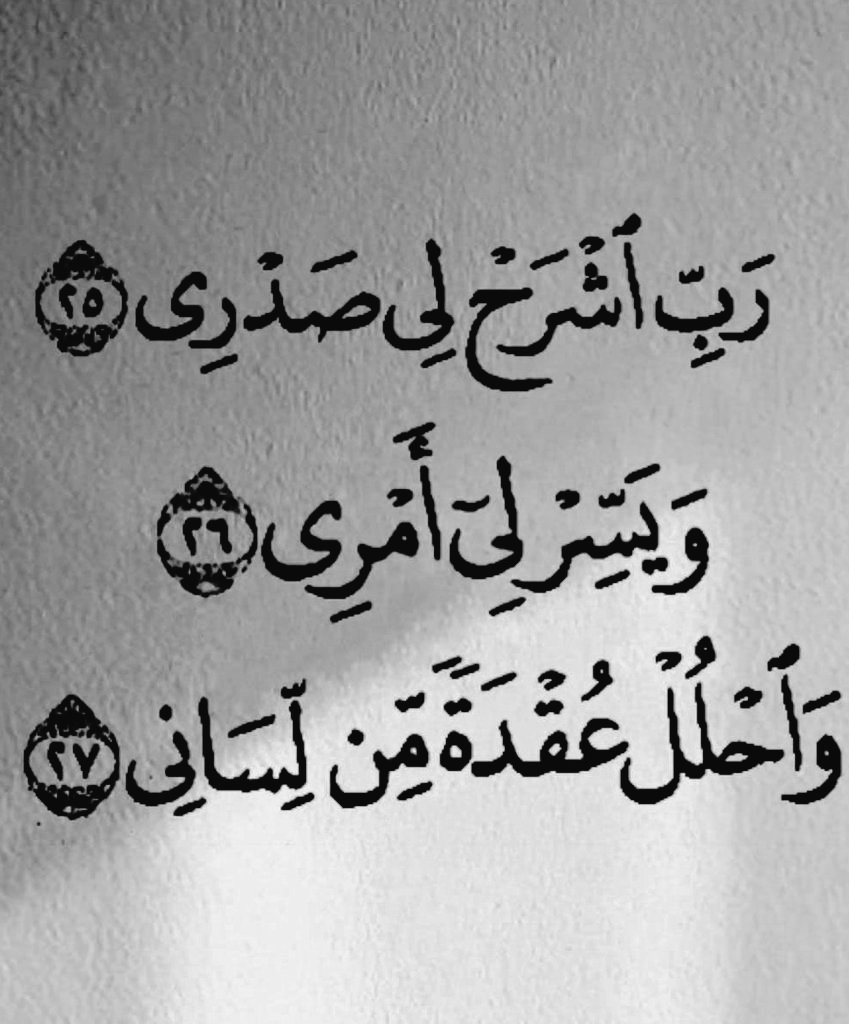 رَبِّ ٱشْرَحْ لِى صَدْرِى ٢٥
وَيَسِّرْ لِىٓ أَمْرِى ٢٦
وَٱحْلُلْ عُقْدَةً مِّن لِّسَانِى ٢٧